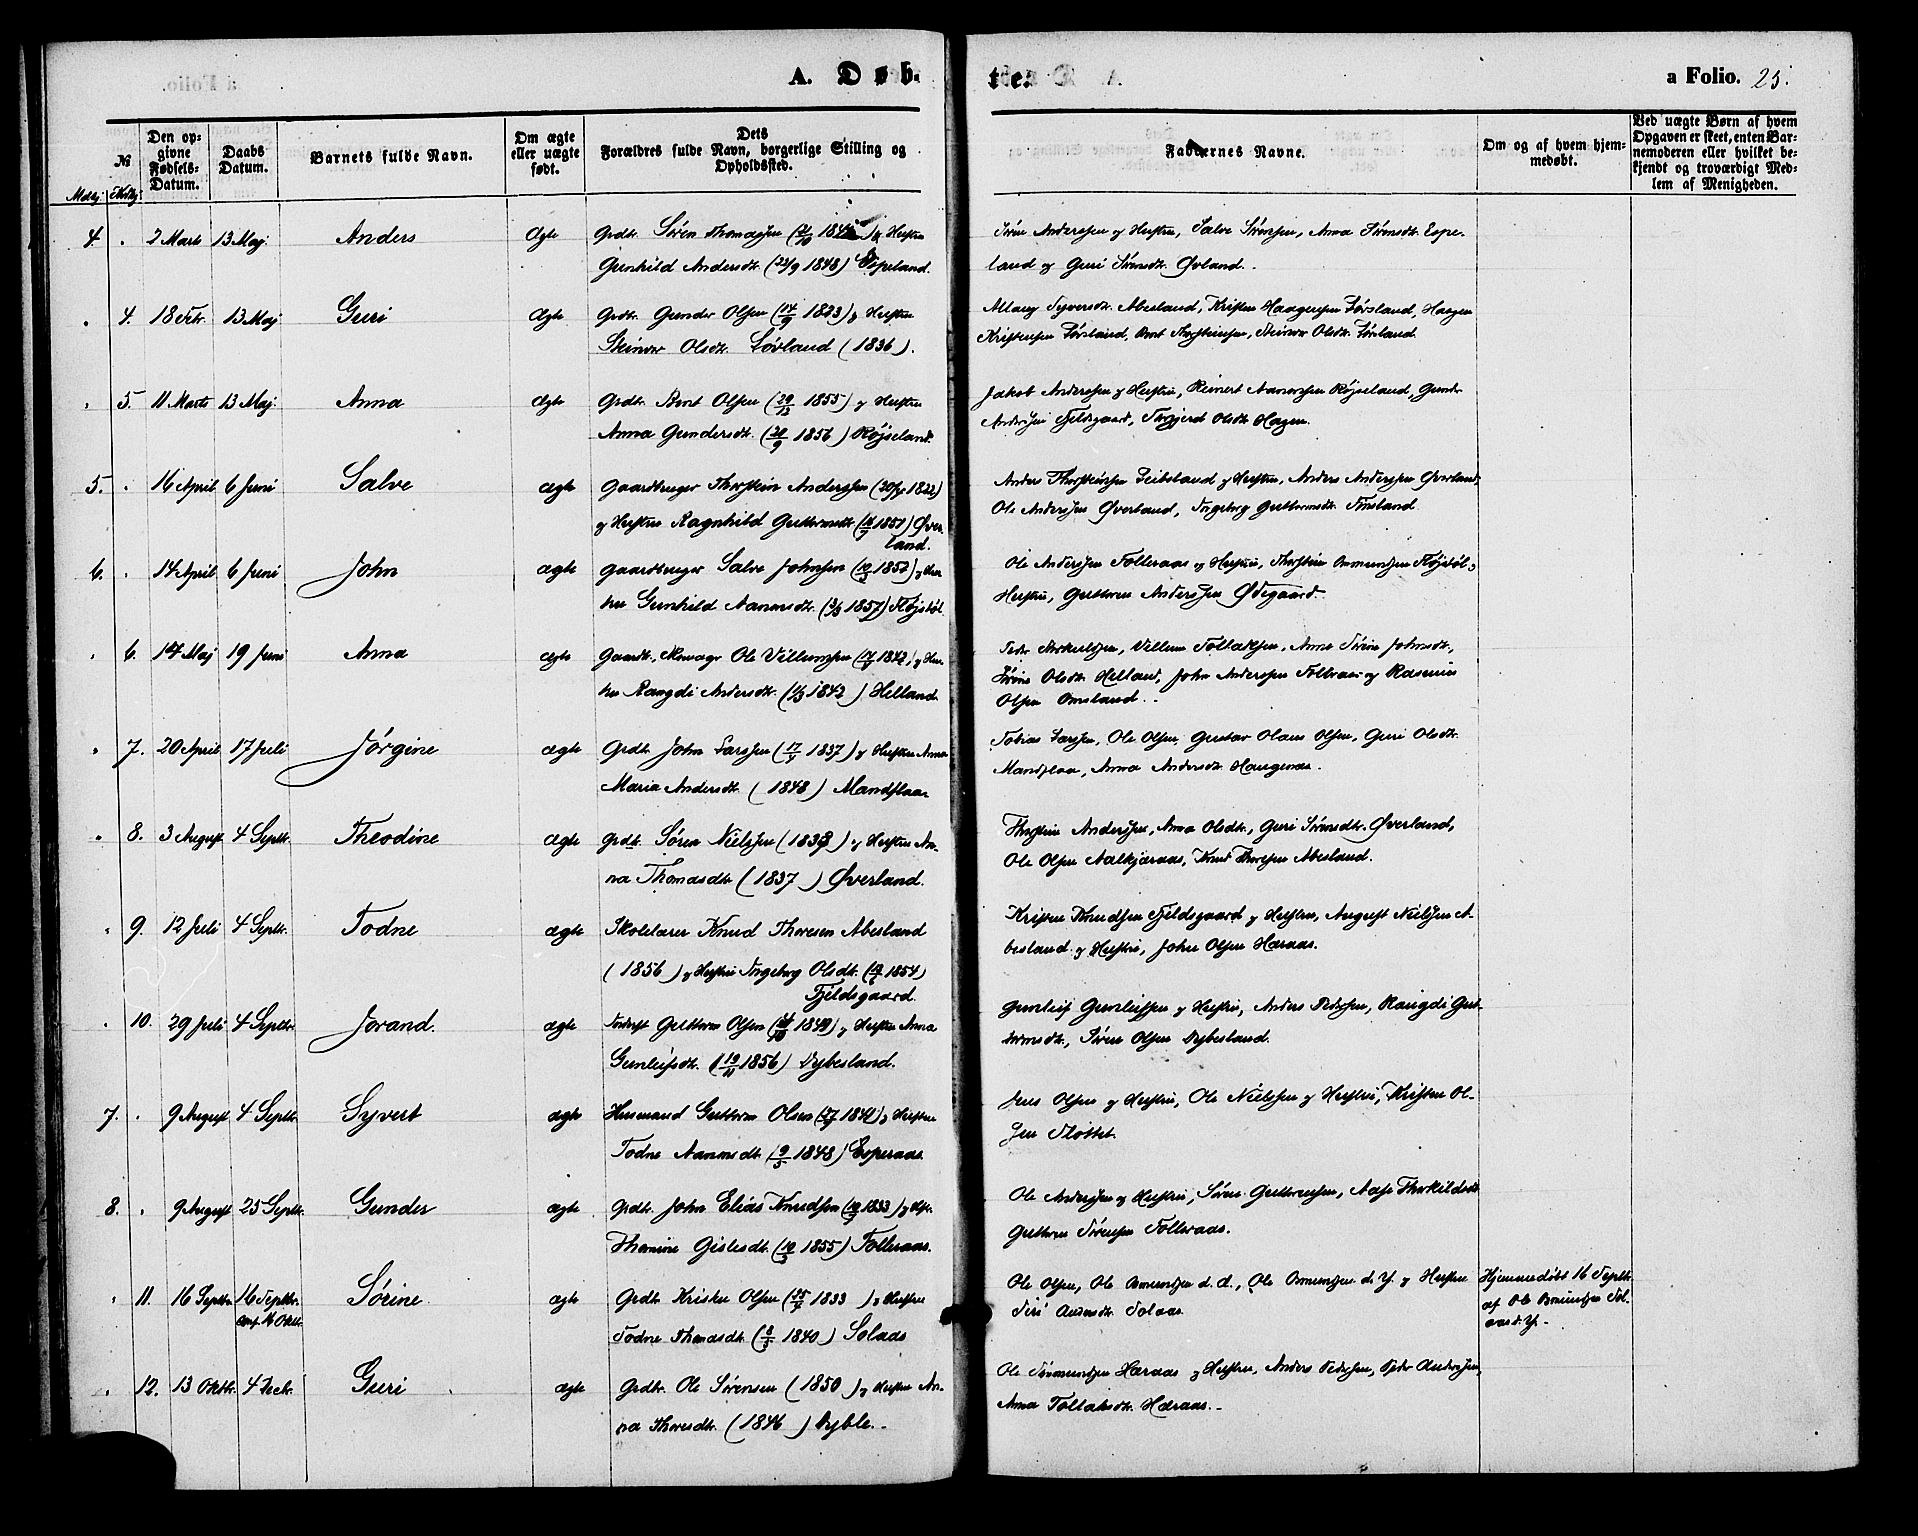 A. Døb-
te.
a Folio. 25.
№
Mdkj. Kvkj.
Den op-
givne
Fødsels-
Datum.
Daabs
Datum.
Barnets fulde Navn.
Om ægte
eller uægte
født.
Dets
Forældres fulde Navn, borgerlige Stilling og
Opholdssted.
Faddernes Navne.
Om og af hvem hjem-
medøbt.
Ved uægte Børn af hvem
Opgaven er skeet, enten Bar-
nemoderen eller hvilket be-
kjendt og troværdigt Med-
lem af Menigheden.
4 2 Marts 13 Maj. Anders Ægte Grdbr. Søren Thomassen og Hustru
Gunhild Andersdt. (22/9 1848) Espeland.
Søren Anderssen og Hustru, Salve Sørensen, Anna Sørensdt. Espe-
land og Guri Sørensdt. Øvland.
4. 18 Febr. 13 Maj Guri Ægte Grdbr. Gunder Olsen (14/9 1823) og Hustru
Steinvor Olsdt. Løvland (1836).
Syversdt. Abesland, Kristen Haagensen, Haagen
Kristensen, Bent Thorsteinsen, Steinvor Olsdt.
5. 11 Marts 13 Maj. Anna Ægte Grdbr. Bent Olsen (29/12 1855) og Hustru
Anna Gundersdt. (20/9 1856) Røjseland.
Jakob Anderssen og Hustru, Reinert Aanensen Røjseland, Gunder
Anderssen Fjeldsgaard, Olsdt. Hagen.
5. 16 April 6 Juni Salve ægte Gaardbruger Thorstein Anderssen (20/4 1822)
og Hustru Ragnhild Guttormsdt. Øver-
land.
Anders Thorsteinsen Leibsland og Hustru, Anders Anderssen Øverland,
Ole Anderssen Øverland, Ingeborg Guttormsdt. Finsland
6. 14 April 6 Juni John ægte Gaardbruger Salve Johnsen (10/3 1852) og Hus-
tru Gunhild Aanensdt. Røjstøl.
Ole Anderssen Folleraas og Hustru, Thorstein Omundsen Røjstøl og
Hustru, Guttorm Anderssen Ødegaard.
6. 14 Maj 19 Juni Anna ægte Gaardbr. Ole Villumsen og Hus-
tru Rangdi Andersdt. Helland.
Peder Thorkildsen, Villum Tollaksen, Anne Sørine Johnsdt.,
Sørine Olsdt. Helland, John Anderssen Follraas og Rasmus
Olsen Omsland.
7. 20 April 17 Juli Jørgine ægte Grdbr. John Larssen og Hustru Anna
Maria Andersdt. (1848) Mandflaa.
Tobias Larssen, Ole Olsen, Gustav Olaus Olsen, Guri Olsdt.
Mandflaa, Anna Andersdt. Haugenes.
8. 3 August 4 Septbr. Theodine Ægte Grdbr. Søren Nielssen og Hustru An-
na Thomasdt. (1837) Øverland.
Thorstein Anderssen, Anna Olsdt., Guri Sørensdt. Øverland,
Ole Olsen Aalkjæraas, Knud Thoresen Abesland.
9. 12 Juli 4 Septbr. Todne ægte Skolelærer Knud Thoresen Abesland
(1856) og Hustru Ingeborg Olsdt.
Fjeldsgaard.
Kristen Knudsen Fjeldsgaard og Hustru, August Nielssen A-
besland og Hustru, John Olsen Haraas.
10. 29 Juli 4 Septbr. Jorand. ægte Guttorm Olsen og Hustru Anna
Gunleifsdt. (19/11 1856) Dybesland.
Gunleif Gunleifsen og Hustru, Anders Pedersen, Rangdi Gut-
tormsdt., Søren Olsen Dybesland.
7. 9 August 4 Septbr. Syvert ægte Husmand Guttorm Olsen og Hustru
Todne Aanensdt. (9/5 1848) Esperaas.
Jens Olsen og Hustru, Ole Nielssen og Hustru, Kristen Ol-
sen Flottet.
8. 9 August 25 Septbr. Gunder ægte Grdbr. John Elias Knudsen og Hstr.
Thomine Gislesdt. (10/3 1855) Follraas.
Ole Anderssen og Hustru, Søren Guttormsen, Aase Thorkildsdt.
Guttorm Sørensen Follraas.
11. 16 Septbr. 16 Septbr.
conf. 16 Oktbr.
Sørine. ægte Grdbr. Kristen Olsen og Hustru
Todne Thomasdt. (8/5 1840) Solaas
Ole Olsen, Ole Omundsen d. d., Ole Omundsen d. Y. og Hustru
Siri Andersdt. Solaas
Hjemmedøbt 16 Septbr.
af Ole Omundsen Sol-
aas d. Y.
12. 13 Oktbr. 4 Decbr. Guri ægte Grdbr. Ole Sørensen (1850) og Hustru An-
na Thoresdt. (1846) Dyble.
Ole Haraas og Hustru, Anders Pedersen, Peder Anderssen,
Anna Tollaksdt. Haraas.